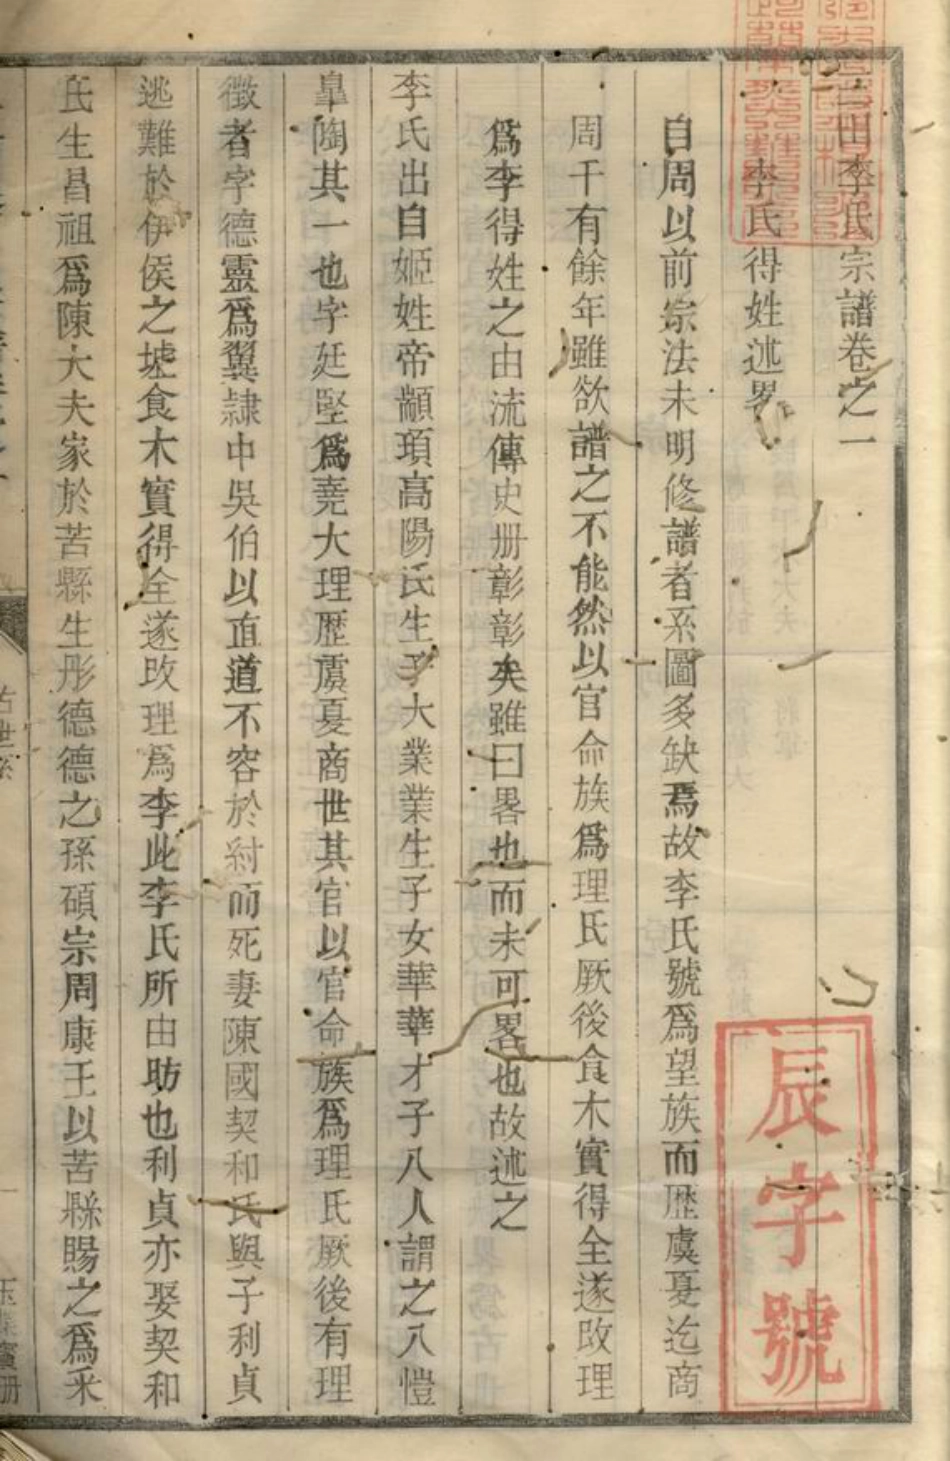 三田李氏宗譜卷之一
李氏得姓述畧
自周以前宗法未明修譜者系圖多缺焉故李氏號爲望族而歴虞夏迄商
周千有餘年雖欲譜之不能然以官命族爲理氏厥後食木實得全遂改理
爲李得姓之由流傳史册彰彰矣雖曰畧也而未可畧也故述之
李氏出自姬姓帝顓頊高陽氏生子大業業生子女華華才子八人謂之八愷
臯陶其一也字廷堅爲堯大理歴虞夏商世其官以官命族爲理氏厥後有理
徵者字德靈爲翼隷中吳伯以直道不容於紂而死妻陳國契和氏與子利貞
逃難於伊侯之墟食木實得全遂改理爲李此李氏所由昉也利貞亦娶契和
氏生昌祖爲陳大夫家於苦縣生彤德德之孫碩宗周康王以苦縣賜之爲采
古世系
一
玉牒寳册
辰字號